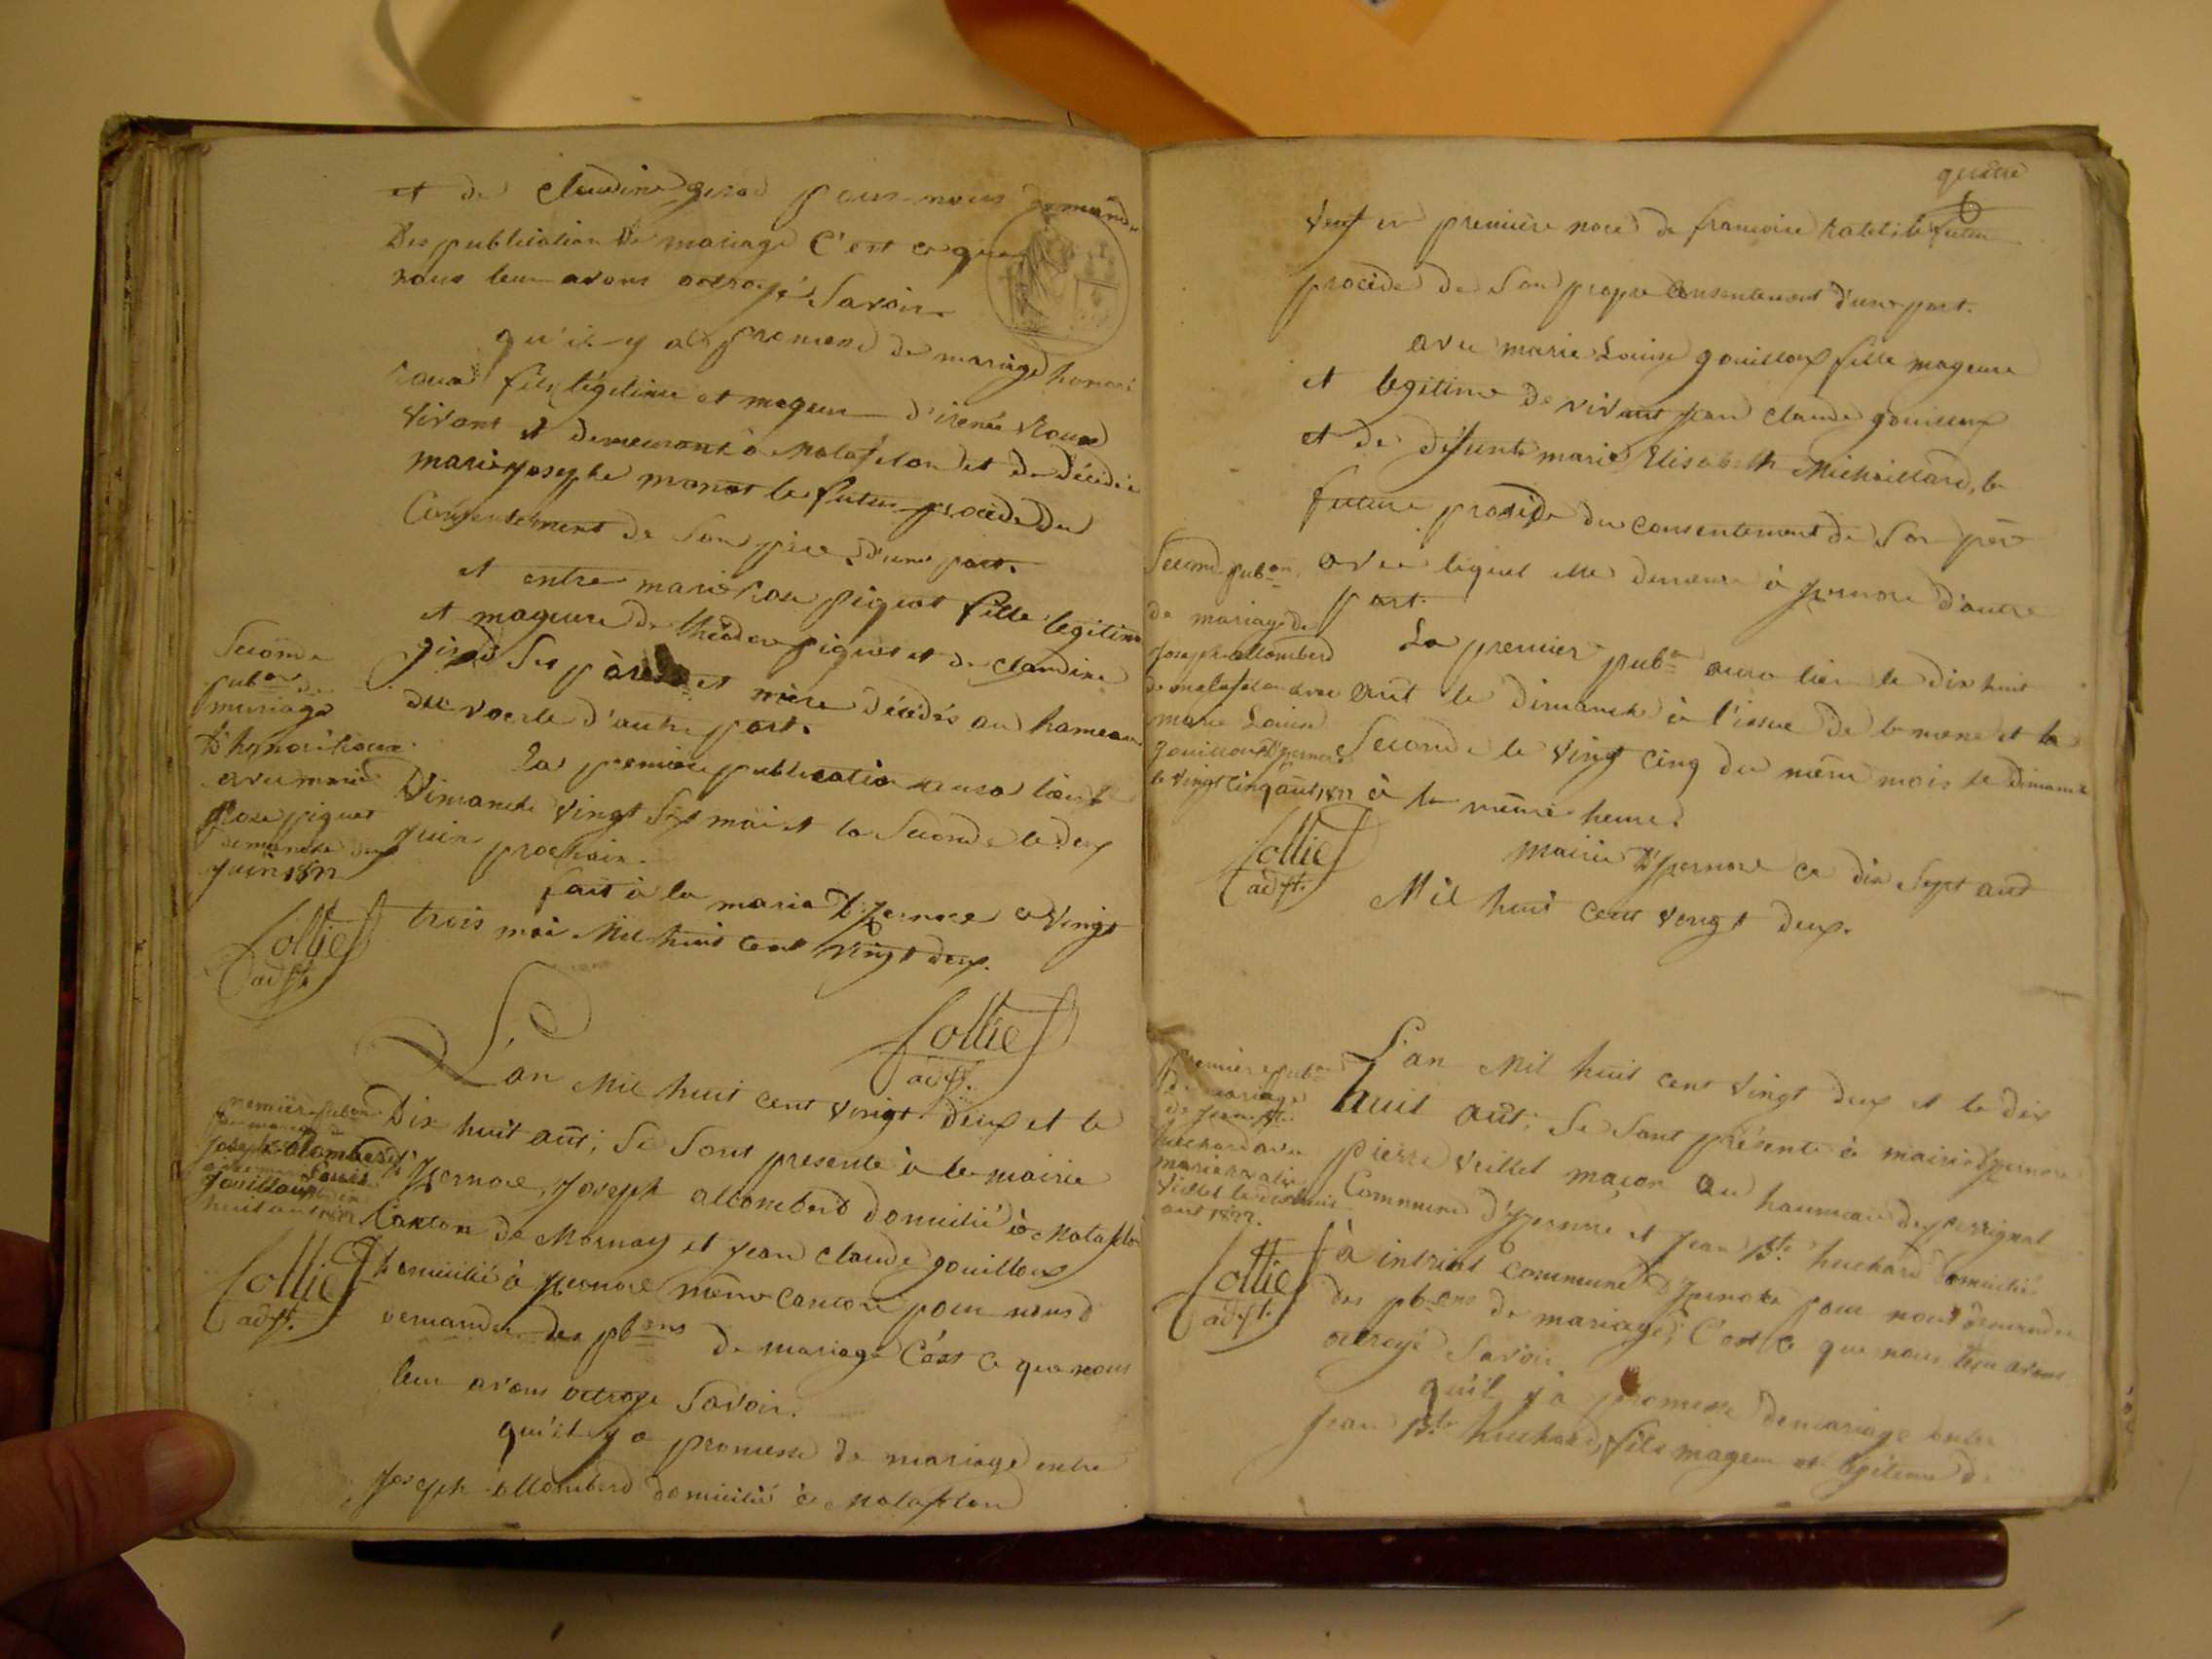 et de Claudine girod pour nous demander
Des publication de mariage C'est ce que
nous leur avons octroyé Savoir.
qu'il y a promesse de mariage honoré
Roux fils légitime et mageur d'irenée Roux
vivant et demeurant à Matafelon et de décédée
marie josephe monot le futur procède du
Consentement de Son père d'une part.
et entre marie Rose piquet fille legitime
et mageure de théodore piquet et de claudine
girod Ses père et mère décédés au hameau
de d'autre part.
La premiere publication aura lieu le
Dimanche vingt Six mai et la Seconde le deux
juin prochain.
fait à la mairie D'jzernore ce vingt
trois mai Mil huit cent vingt deux.
Collief
adjt.
Seconde
pubon de
mariage
D'honoré Roux
avec marie
Rose piquet
dimanche deux
juin 1822
Collief
adjt.
L'an Mil huit cent vingt deux et le
Dix huit aût; Se Sont presenté à la mairie
D'jzernore, joseph allombert domicilié à Matafelon
Canton de Mornay et jean claude gouilloux
Domicilié à jzernore même canton pour nous
demander des pbons de mariage C'est ce que nous
leur avons octroye Savoir.
qu'il y a promesse de mariage entre
joseph allombert domicilié à Matafelon
premiere pubon
de mariage de
joseph allombert
avec marie Louise
gouilloux le dix
huit aut 1822
Collief
adjt.
quatre
6
Veuf en première noce de francoise le futur
procède de Son propre Consentement d'une part.
avec marie Louise gouilloux fille mageure
et legitime de vivant jean claude gouilloux
et de défunte marie Elisabeth Michaillard, la
future procède du consentement de Son père
avec lequel elle demeure à jzernore d'autre
part.
La premier pubon aura lieu le dix huit
aût le dimanche à l'issue de la messe et la
Seconde le vingt cinq du même mois le dimanche
à la même heure.
mairie D'jzernore ce dix Sept aut
Mil huit cent vingt deux.
Second pubon
de mariage de
joseph allomberd
de matafelon avec
marie Louise
gouilloux D'jzernore
le vingt cinq aût 1822
Collief
adjt.
L'an Mil huit cent vingt deux et le dix
huit aût; Se Sont présenté à mairie D'jzernore
pierre Veillet maçon au haumeau de perrignat
Commune d'jzernore et jean Bte huchard domicilié
à intriat Commune D'jzernore pour nous demander
des pbons de mariage; C'est ce que nous leur avons
octroyé Savoir.
qu'il y a promesse de mariage entre
jean Bte huchard, fils mageur et legitime de
Premiere pubon
de mariage
de jean Bte
huchard avec
marie
Veillet le dix huit
aut 1822.
Collief
adjt.